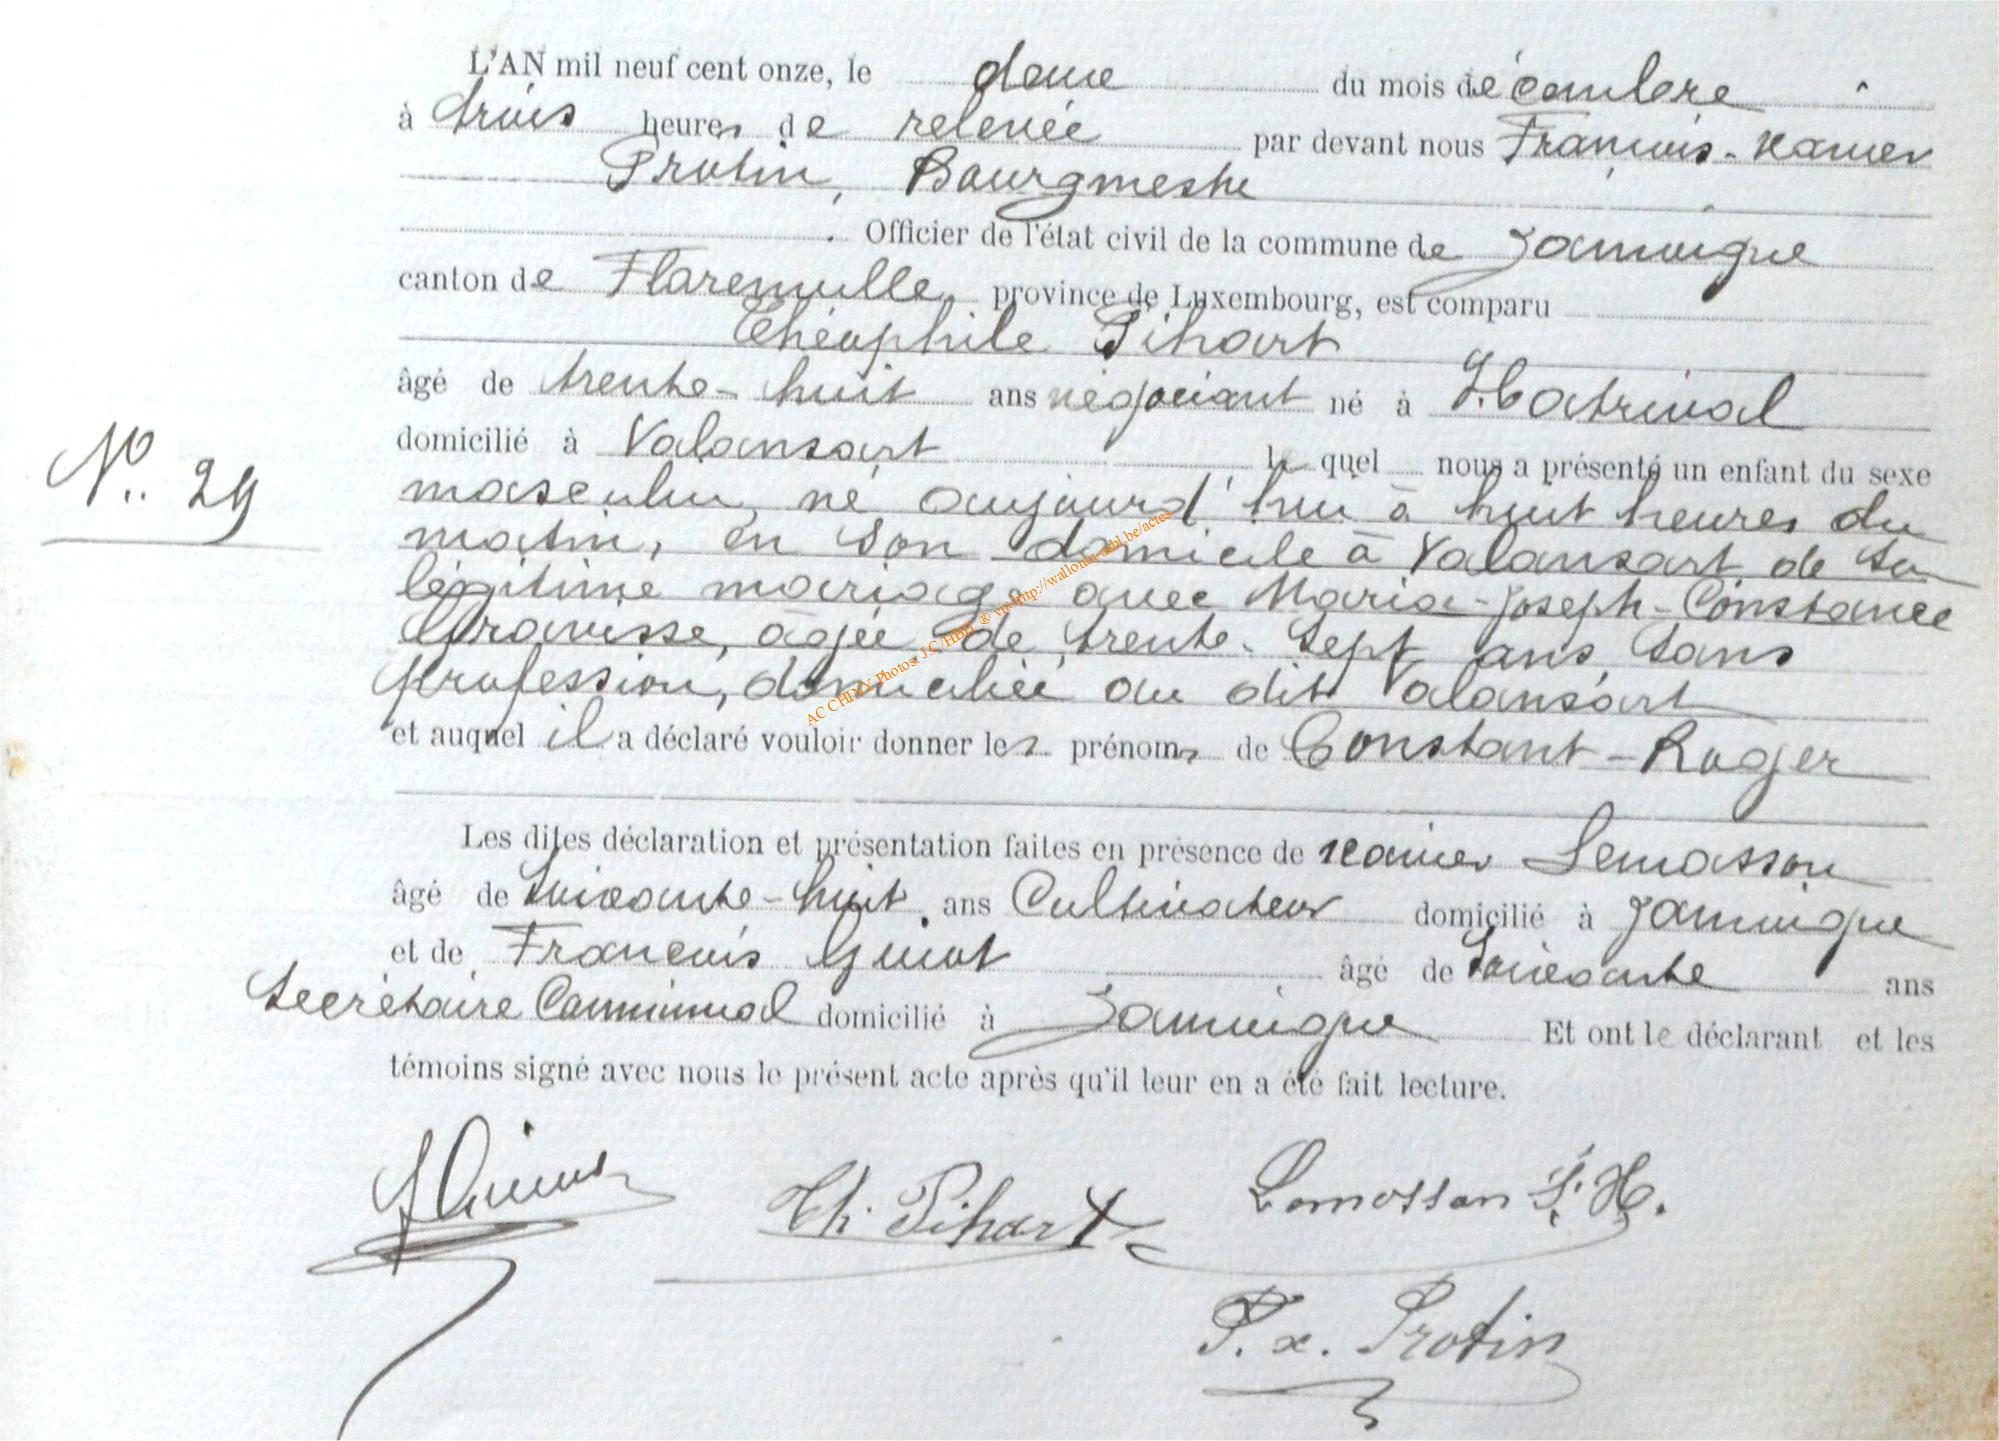 L'AN mil neuf cent onze, le douze du mois décembre
à trois heures de relevée par devant nous François-Xavier
Protin, Bourgmestre
Officier de l'état civil de la commune de Jamoigne
canton de Florenville, province de Luxembourg, est comparu
Théophile Pihart
âgé de trente-huit ans négociant né à Hatrival
domicilié à Valansart lequel nous a présenté un enfant du sexe
N° 29
masculin, né aujourd'hui à huit heures du
matin, en son domicile à Valansart de sa
légitime mariage avec Maria-Joseph-Constance
Gravisse, âgée de trente-sept ans sans
profession, domiciliée au dit Valansart
et auquel il a déclaré vouloir donner les prénoms de Constant-Roger
Les dites déclaration et présentation faites en présence de Xavier Lemasson
âgé de soixante-huit ans Cultivateur domicilié à Jamoigne
et de François Guiot âgé de soixante ans
Secrétaire Communal domicilié à Jamoigne Et ont le déclarant et les
témoins signé avec nous le présent acte après qu'il leur en a été fait lecture.
Th. Pihart
Lemasson
F. x. Protin
AC CHINY Photos, J.C./HBH ® via http://wallonia-asbl.be/actes